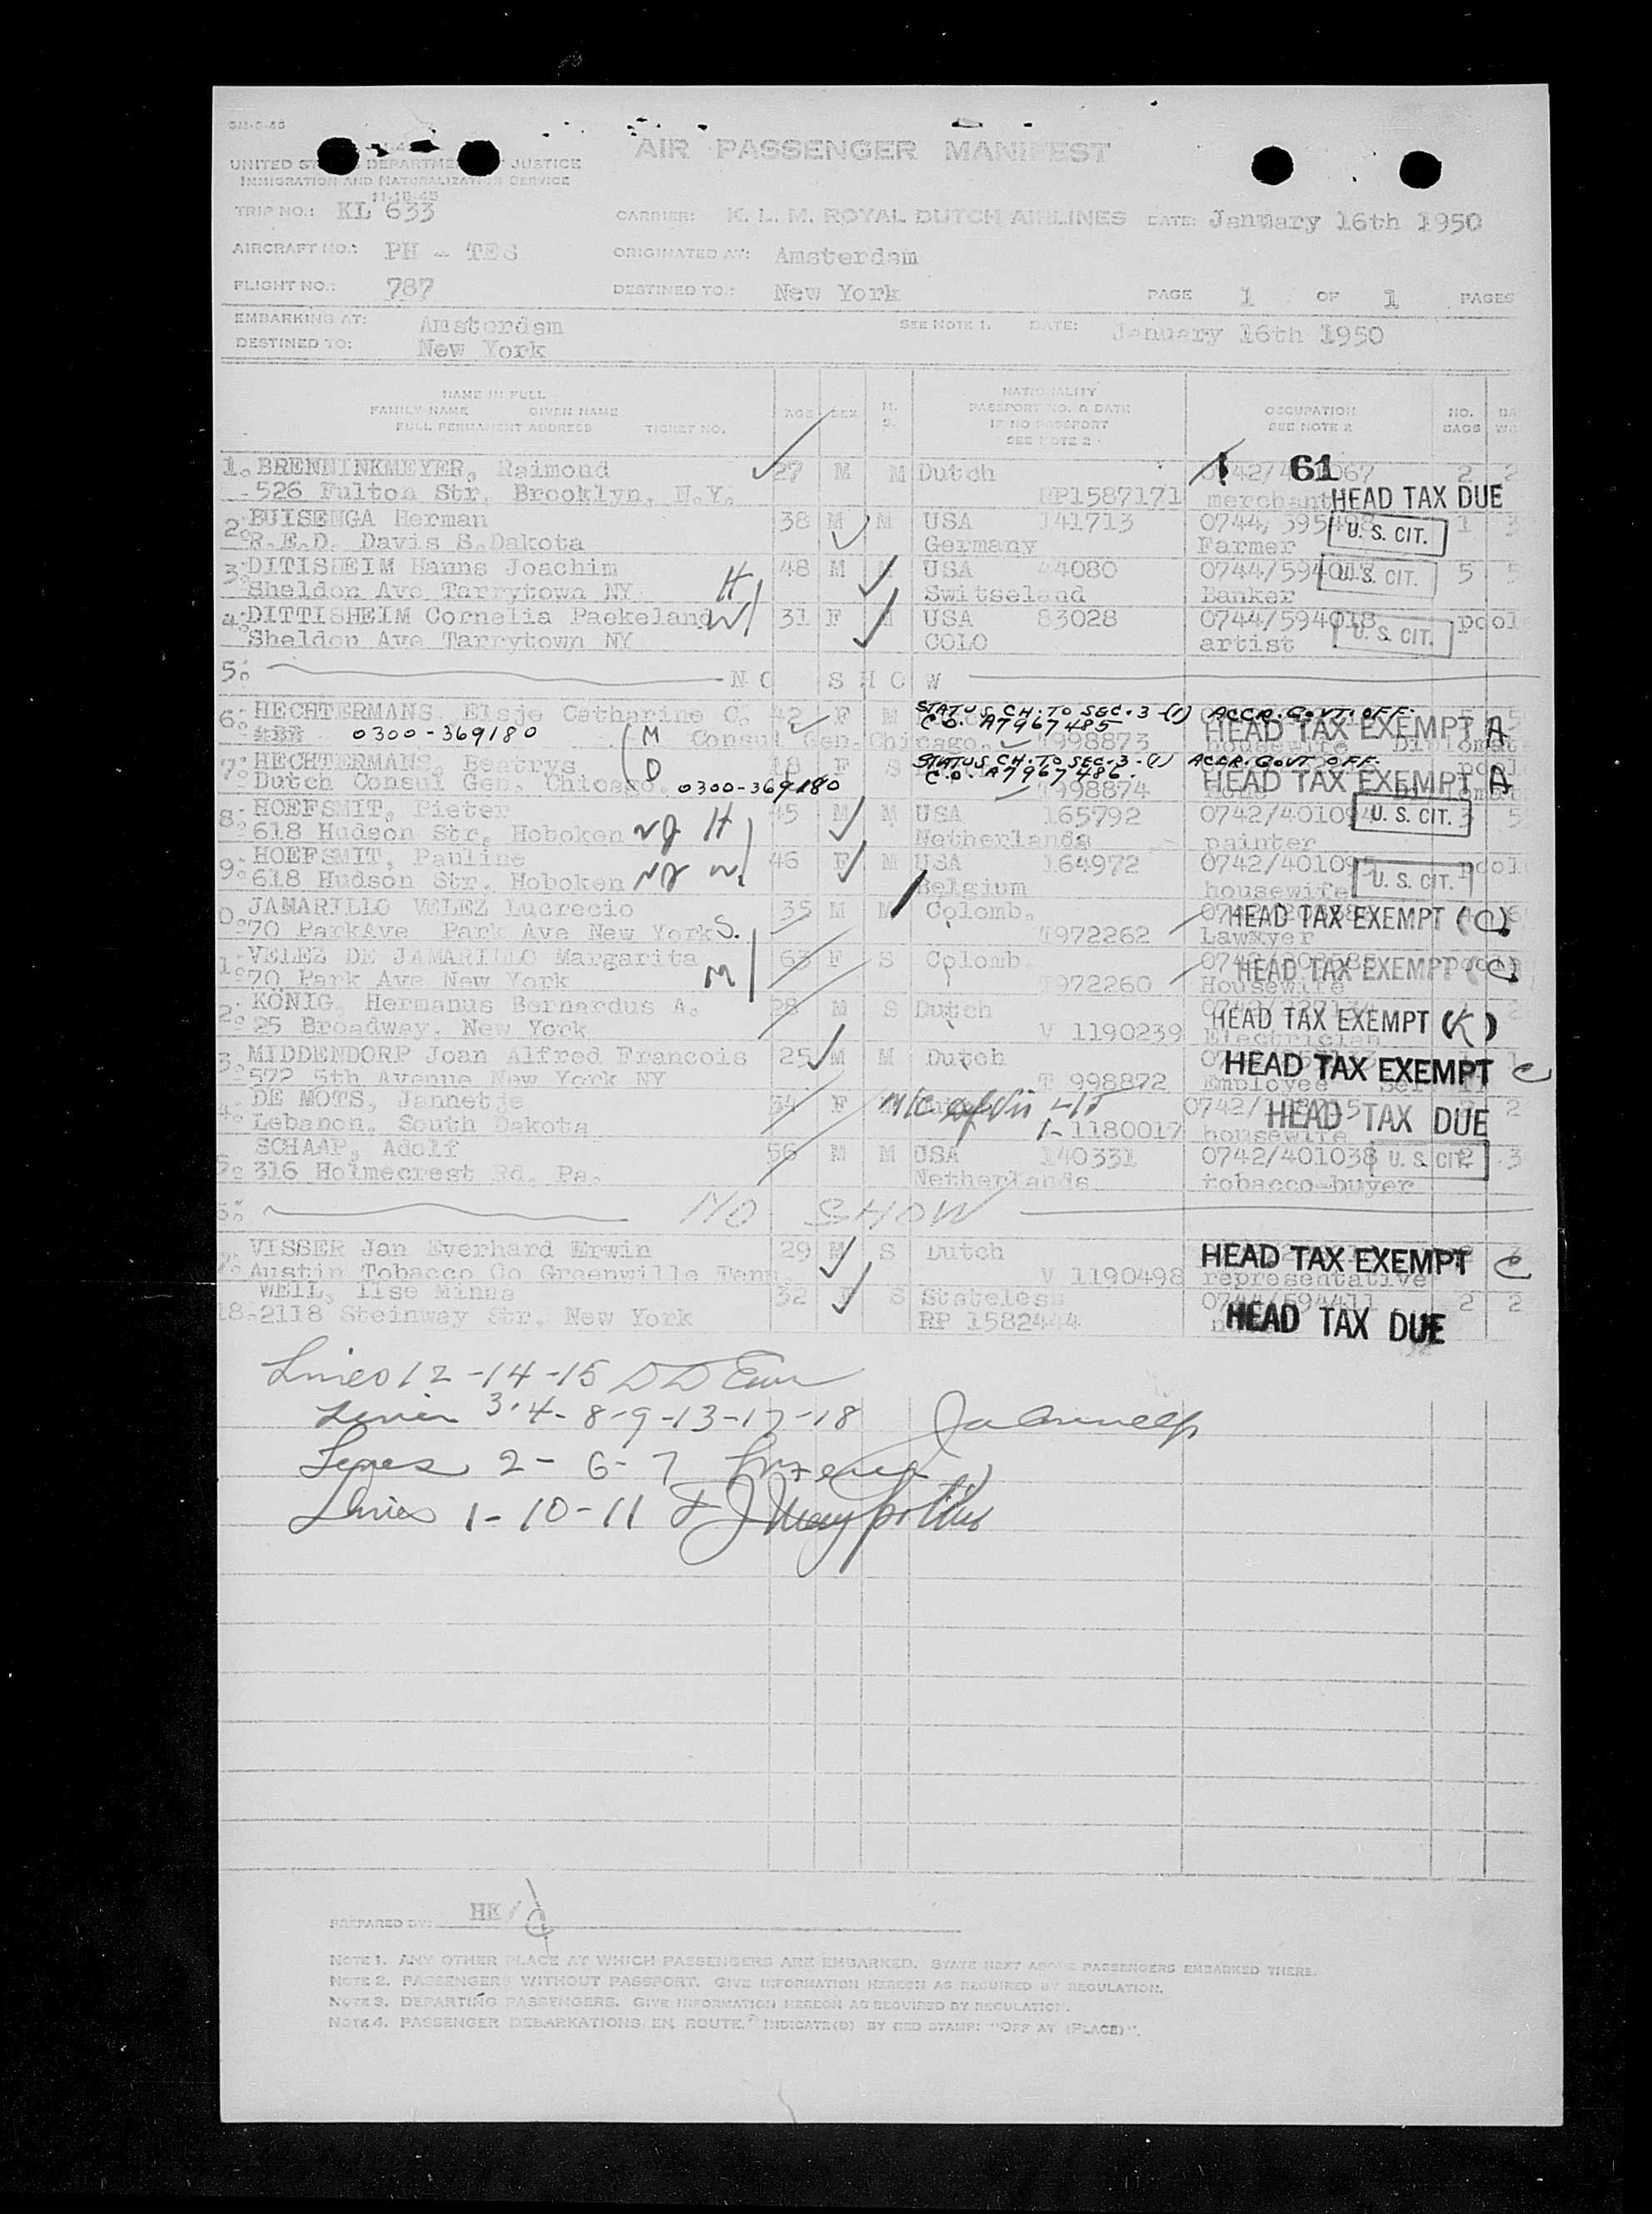 AIR PASSENGER MANIFEST
UNITED DEPARTME JUSTICE
IMMIGRATION AND NATURALIZATION SERVICE
11-18-48
TRIP NO.: KL 633 CARRIER: K. L. M. ROYAL DUTCH AIRLINES DATE: January 16th 1950
AIRCRAFT NO.: PH - TES ORIGINATED AT: Amsterdam
FLIGHT NO.: 787 DESTINED TO.: New York PAGE 1 OF 1 PAGES
EMBARKING AT: Amsterdam SEE NOTE 1. DATE: January 16th 1950
DESTINED TO: New York
NAME IN FULL NATIONALITY
FAMILY NAME GIVEN NAME AGE SEX M. PASSPORT NO. & DATE OCCUPATION NO.
FULL PERMANENT ADDRESS TICKET NO. S. IF NO PASSPORT SEE NOTE 2 BAGS
SEE NOTE 2
1. BRENNINKMEYER, Raimond 27 M M Dutch 61 2 2
526 Fulton Str. Brooklyn, N.Y. RP1587171 merchant HEAD TAX DUE
2. BUISENGA Herman 38 M M USA 141713 0744/595498 U. S. CIT. 1 3
R.E.D. Davis S.Dakota Germany Farmer
3. DITISHEIM Hanns Joachim 48 M USA 44080 0744/594017 U. S. CIT. 5 5
Sheldon Ave Tarrytown NY H Switseland Banker
4. DITTISHEIM Cornelia Paekeland W 31 F USA 83028 0744/594018 U. S. CIT. pool
Sheldon Ave Tarrytown NY COLO artist
5. NO SHOW
6. HECHTERMANS, Elsje Catharine C. 42 F M STATUS CH. TO SEC. 3-(1) ACCR. GOVT. OFF.
C.O. A7967485 HEAD TAX EXEMPT A
0300-369180 M Consul Gen. Chicago. T998873 housewife Diplomat
7. HECHTERMANS, Beatrys 18 F S STATUS CH. TO SEC. 3-(1) ACCR. GOVT OFF.
C.O. A7967486. HEAD TAX EXEMPT A
Dutch Consul Gen. Chicago. D 0300-369180 T998874
8. HOEFSMIT, Pieter 45 M M USA 165792 0742/401094 U. S. CIT. 3 5
618 Hudson Str. Hoboken NJ H Netherlands painter
9. HOEFSMIT, Pauline 46 F M USA 164972 0742/401095 U. S. CIT. pool
618 Hudson Str. Hoboken NJ W. Belgium housewife
0. JAMARILLO VELEZ Lucrecio 35 M M Colomb. HEAD TAX EXEMPT (C)
70 ParkAve Park Ave New York S. T972262 Lawxyer
1. VELEZ DE JAMARILLO Margarita 63 F S Colomb. HEAD TAX EXEMPT (C)
70 Park Ave New York M T972260 Housewife
2. KÖNIG, Hermanus Bernardus A. 28 M S Dutch HEAD TAX EXEMPT (K)
25 Broadway, New York V 1190239 Electrician
3. MIDDENDORP Joan Alfred Francois 25 M M Dutch HEAD TAX EXEMPT C
572 5th Avenue New York NY T 998872 Employee
4. DE MOTS, Jannetje 34 F HEAD TAX DUE 2
Lebanon, South Dakota 1180017 housewife
SCHAAP, Adolf 56 M M USA 140331 0742/401038 U. S. CIT. 2 3
316 Holmecrest Rd. Pa. Netherlands tobacco-buyer
NO SHOW
VISSER Jan Everhard Erwin 29 M S Dutch HEAD TAX EXEMPT C
Austin Tobacco Co Greenwille Tenn. V 1190498 representative
WEIL, Ilse Minna 32 F S Stateless 0744/594411 2 2
18. 2118 Steinway Str. New York RP 1582444 HEAD TAX DUE
Lines 12-14-15
Lines 3.4-8-9-13-17-18
Lines 2-6-7
Lines 1-10-11
PREPARED BY: HK/
NOTE 1. ANY OTHER PLACE AT WHICH PASSENGERS ARE EMBARKED. STATE NEXT ABOVE PASSENGERS EMBARKED THERE.
NOTE 2. PASSENGERS WITHOUT PASSPORT. GIVE INFORMATION HEREON AS REQUIRED BY REGULATION.
NOTE 3. DEPARTING PASSENGERS. GIVE INFORMATION HEREON AS REQUIRED BY REGULATION.
NOTE 4. PASSENGER DEBARKATIONS EN ROUTE. INDICATE(D) BY RED STAMP: "OFF AT (PLACE)".